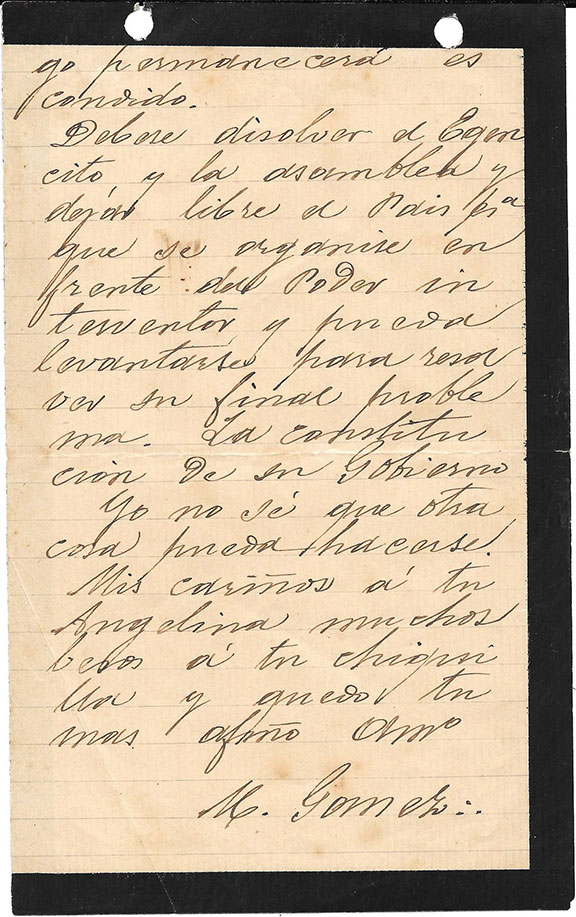 go permanecerá es
condido.
Debese disolver el Egen
cito y la asamblea y
dejár libre el Pais pª
que se organise en
frente del Poder in
terventor y pueda
levantarse para resol
ver su final proble
ma. La constitu
ción de su Gobierno
Yo no sé que otra
cosa pueda hacerse.
Mis cariños á tu
Angelina muchos
besos á tu chiqui
lla y quedo tu
mas afmo Amo
M. Gomez:.